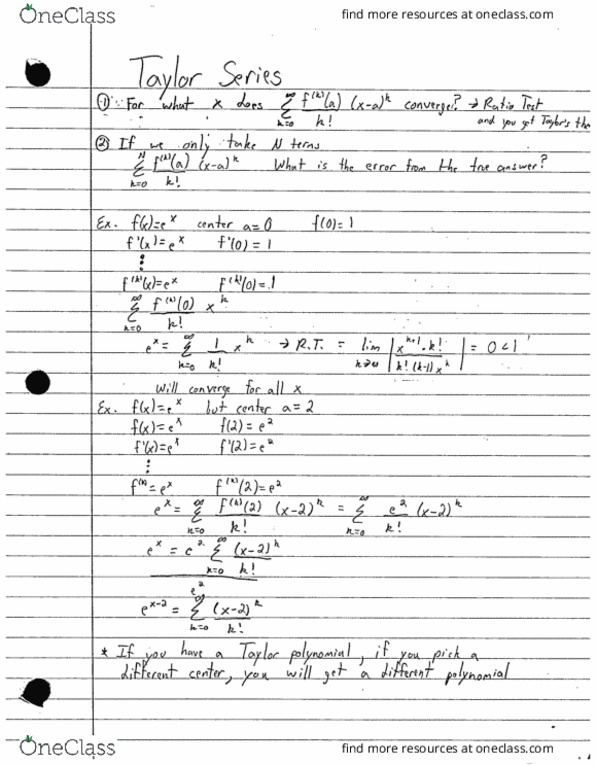 OneClass find more resources at oneclass.com
Taylor Series
① For what x does ∑_{k=0}^{∞} f^{(k)}(a)/k! (x-a)^k converge? → Ratio Test
and you get Taylor's th
② If we only take N terms
∑_{k=0}^{N} f^{(k)}(a)/k! (x-a)^k What is the error from the true answer?
Ex. f(x)=e^x center a=0 f(0)=1
f'(x)=e^x f'(0)=1
⋮
f^{(k)}(x)=e^x f^{(k)}(0)=1
∑_{k=0}^{∞} f^{(k)}(0)/k! x^k
e^x = ∑_{k=0}^{∞} 1/k! x^k → R.T. = lim_{k→∞} |x^{k+1}·k! / k!(k-1)x^k| = 0<1
Will converge for all x
Ex. f(x)=e^x but center a=2
f(x)=e^x f(2)=e^2
f'(x)=e^x f'(2)=e^2
⋮
f^{(k)}=e^x f^{(k)}(2)=e^2
e^x = ∑_{k=0}^{∞} f^{(k)}(2)/k! (x-2)^k = ∑_{k=0}^{∞} e^2/k! (x-2)^k
e^x = e^2 ∑_{k=0}^{∞} (x-2)^k/k!
e^2
e^{x-2} = ∑_{k=0}^{∞} (x-2)^k/k!
* If you have a Taylor polynomial, if you pick a
different center, you will get a different polynomial
OneClass find more resources at oneclass.com